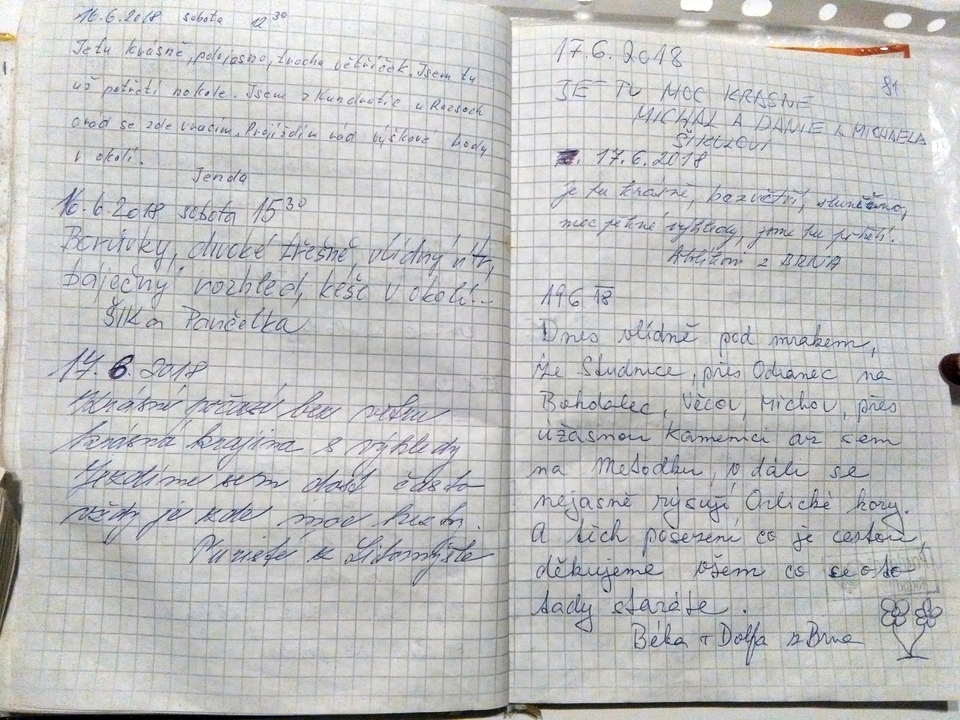 16.6.2018 sobota 12 30
Je tu krásně, polojasno, trocha větříček. Jsem tu
už potřetí na kole. Jsem z Kundratic u Rozsoch
a rád se zde vracím. Projíždím rád výškové body
v okolí.
Jenda
16.6.2018 sobota 15 30
Borůvky, divoké třešně, vlídný vítr,
báječný rozhled, keše v okolí!...
ŠIK a Pančelka
17.6.2018
Krásné počasí bez větru
krásná krajina s výhledy
Jezdíme sem dost často
vždy je zde moc
z Litomyšle
17.6.2018
81
JE TU MOC KRASNE
MICHAL A DANIE A MICHAELA
ŠIKULOVI
17.6.2018
je tu krásně, bezvětří, slunečno,
moc pěkné výhledy, jsme tu
z BRNA
19.6.18
Dnes vlídně pod mrakem,
ze Studnice, přes Odranec na
Bohdalec, Věcov, Míchov, přes
úžasnou Kamenici až sem
na Metodku, v dáli se
nejasně rýsují Orlické hory.
A těch posezení, co je cestou,
děkujeme všem co se o to
tady staráte.
Béka + Dolfa z Brna